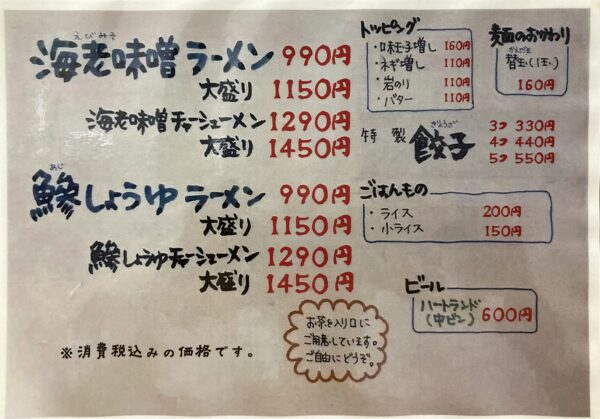 えびみそ
海老味噌ラーメン 990円
大盛り 1150円
海老味噌チャーシューメン 1290円
大盛り 1450円
あじ
鯵しょうゆラーメン 990円
大盛り 1150円
鯵しょうゆチャーシューメン 1290円
大盛り 1450円
※消費税込みの価格です。
トッピング
・味玉子増し 160円
・ネギ増し 110円
・岩のり 110円
・バター 110円
麺のおかわり
かえだま
替玉(1玉)
160円
ぎょうざ
特製 餃子
3コ 330円
4コ 440円
5コ 550円
ごはんもの
・ライス 200円
・小ライス 150円
ビール
ハートランド
(中ビン) 600円
お茶を入り口に
ご用意しています。
ご自由にどうぞ。